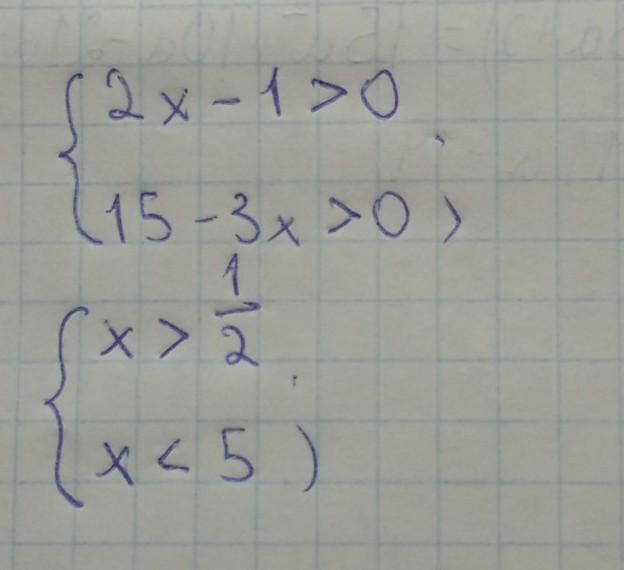 { 2x - 1 > 0
15 - 3x > 0 ;
{ x > 1/2
x < 5 ;